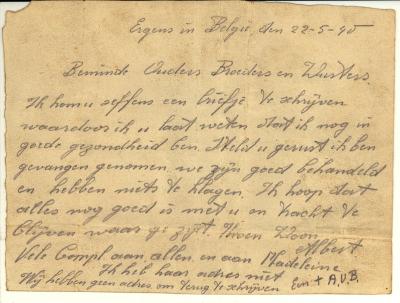 Ergens in België, den 22-5-40
Beminde Ouders Broeders en Zusters.
Ik kom u seffens een briefje te schrijven
waardoor ik u laat weten dat ik nog in
goede gezondheid ben. Steld u gerust ik ben
gevangen genomen. we zijn goed behandeld
en hebben niets te klagen. Ik hoop dat
alles nog goed is met u en tracht te
blijven waar ge zijt. Uwen Zoon
Albert
Vele Compl. aan allen en aan Madeleine
Ik heb haar adres niet
Wij hebben geen adres om terug te schrijven
+ A.V.B.